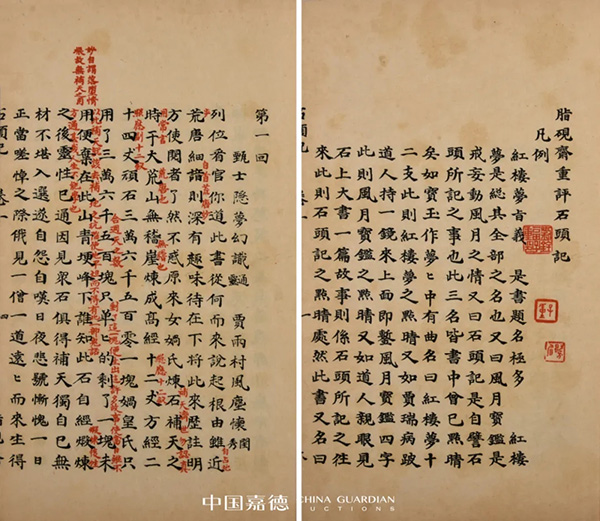 脂硯齋重評石頭記
凡例
紅樓夢旨義 是書題名極多 紅樓
夢是總其全部之名也又曰風月寶鑑是
戒妄動風月之情又曰石頭記是自譬石
頭所記之事也此三名皆書中曾已點睛
矣如寶玉作夢ヒ中有曲名曰紅樓夢十
二支此則紅樓夢之點睛又如賈瑞病跛
道人持一鏡來上面即鏨風月寶鑑四字
此則風月寶鑑之點睛又如道人親眼見
石上大書一篇故事則係石頭所記之往
來此則石頭記之點睛處然此書又名曰
石頭記 卷一 一
第一回
甄士隱夢幻識通靈 賈雨村風塵懷閨秀
列位看官你道此書從何而來說起根由雖近
荒唐細諳則深有趣味待在下將此來歷註明
方使閱者了然不惑原來女媧氏煉石補天之
時于大荒山無稽崖煉成高經十二丈方經二
十四丈頑石三萬六千五百零一塊媧皇氏只
用了三萬六千五百塊只單ヒ的剩了一塊未
用便棄在此山青埂峰下誰知此石自經煅煉
之後靈性已通因見衆石俱得補天獨自己無
材不堪入選遂自怨自嘆日夜悲號慚愧一日
正當嗟悼之際俄見一僧一道遠ヒ而來生得
石頭記 卷一 四
妙自謂落墮情
根故無補天之用
荒唐也
無稽也
總應十二釵
照應副十二釵
中国嘉德
CHINA GUARDIAN
AUCTIONS